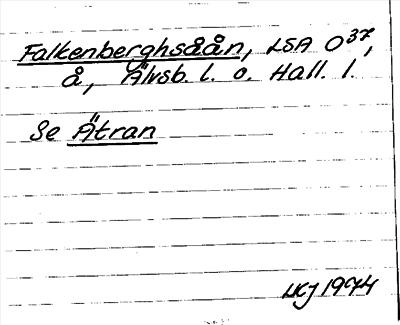 Falkenberghsåån, LSA O 37,
å, Älvsb. l. o. Hall. l.
Se Ätran
LKJ 1974